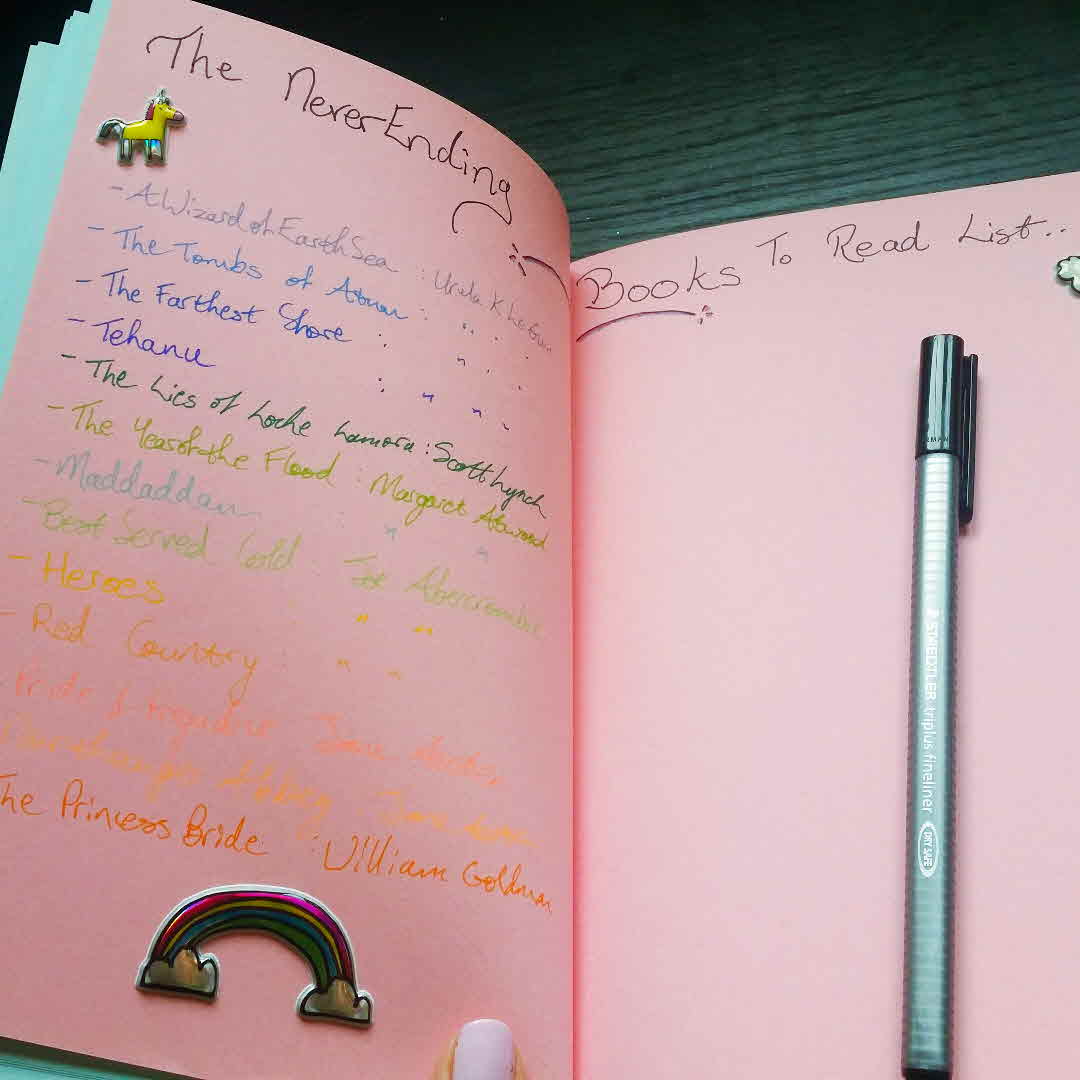 The Never-Ending
- A Wizard of EarthSea : Ursula K Le Guin
- The Tombs of Atuan : " " "
- The Farthest Shore : " " "
- Tehanu : " " "
- The Lies of Locke Lamora : Scott Lynch
- The Year of the Flood : Margaret Atwood
- Maddaddam : " "
- Best Served Cold : Joe Abercrombie
- Heroes " "
- Red Country : " "
- Pride & Prejudice Jane Austen
Northanger Abbey : Jane Austen
The Princess Bride : William Goldman
Books To Read List..
STAEDTLER triplus fineliner DRY SAFE